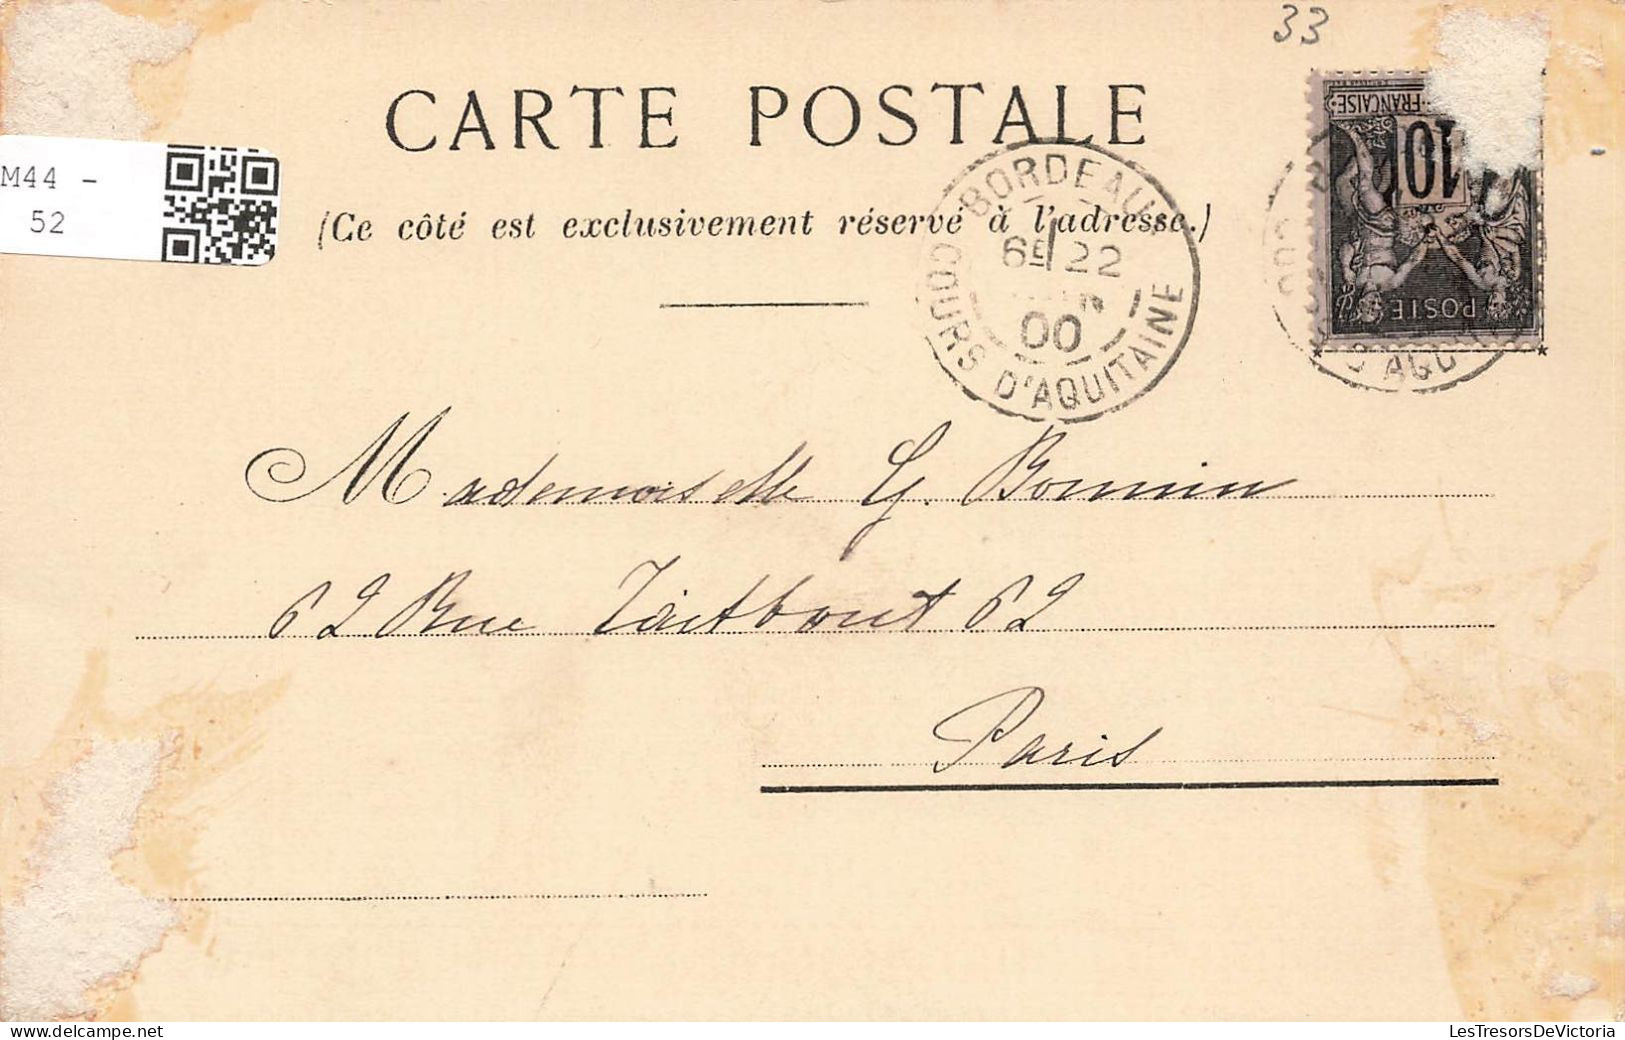 33
CARTE POSTALE
(Ce côté est exclusivement réservé à l'adresse.)
M44 -
52
BORDEAUX
6E 22
00
COURS D'AQUITAINE
FRANÇAISE
10
POSTE
Mademoiselle G. Bonnin
62 Rue Taitbout 62
Paris
LesTresorsDeVictoria
delcampe.net